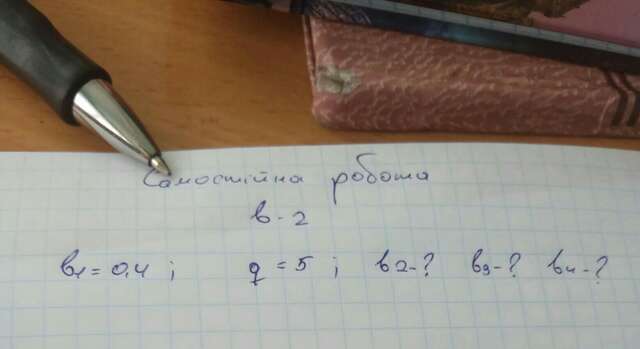 Самостійна робота
в - 2
b1 = 0,4 ; q = 5 ; b2 - ? b3 - ? b4 - ?